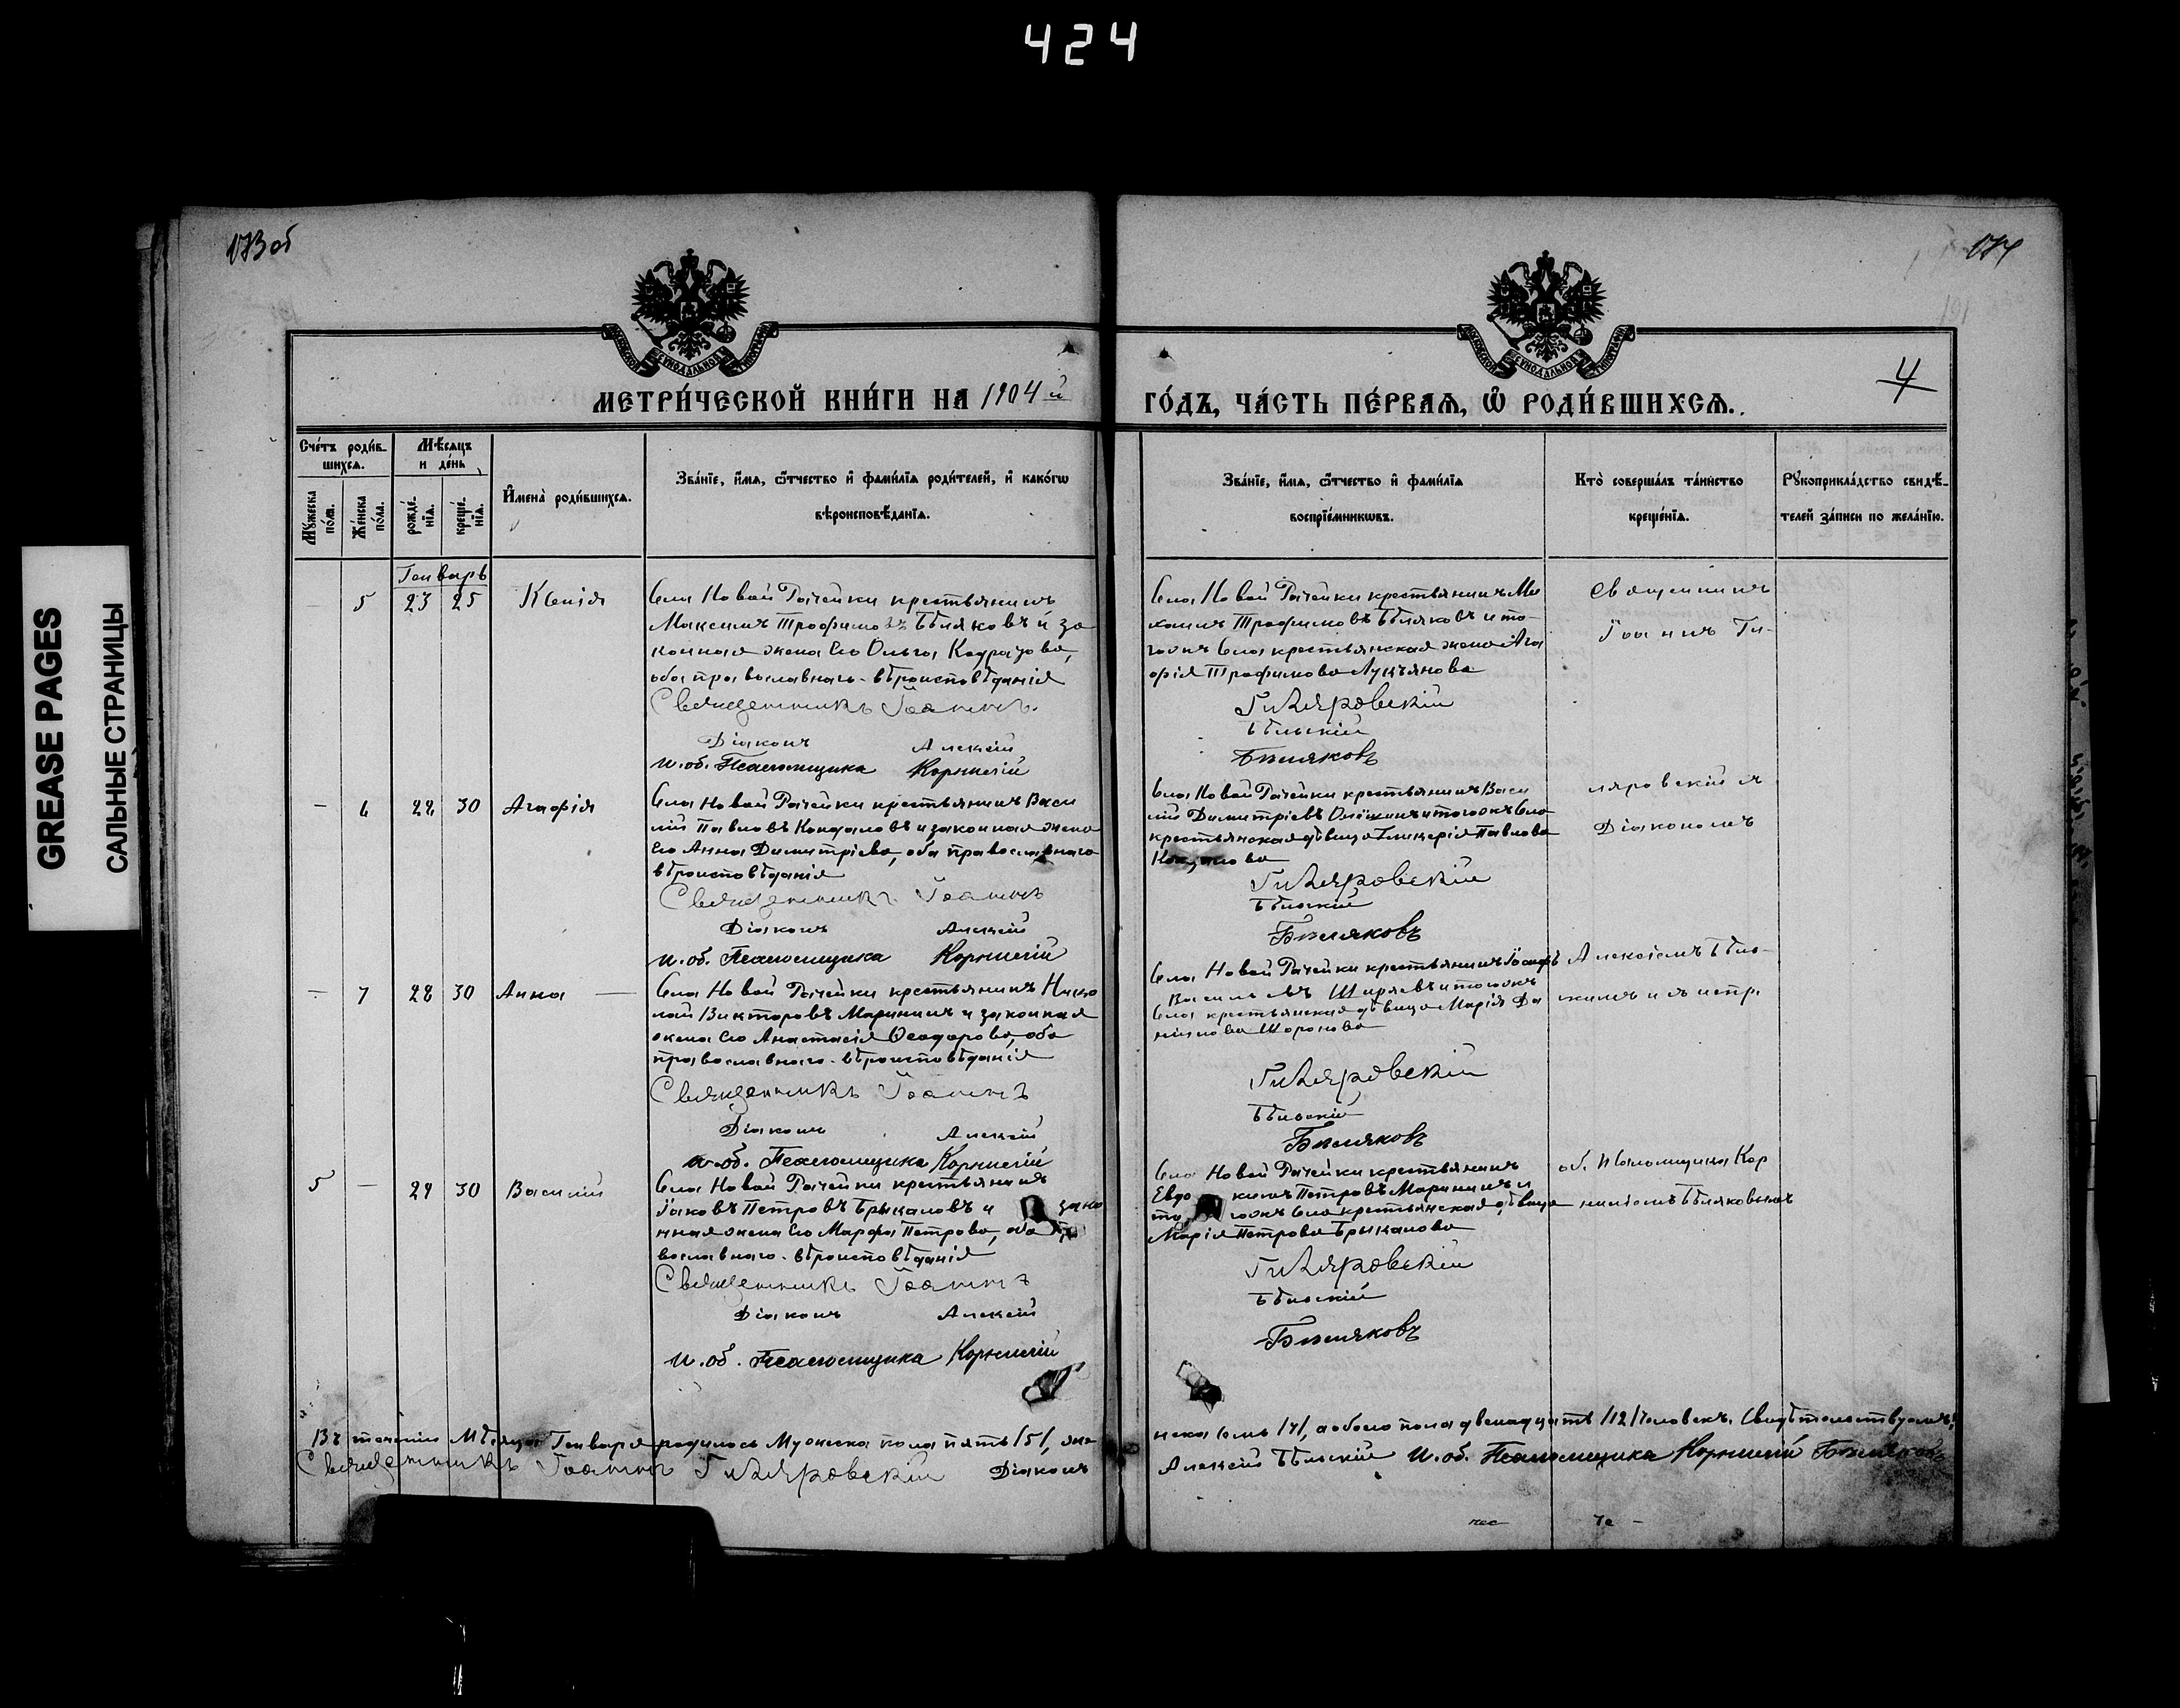 424
173 об
174
4
GREASE PAGES
САЛЬНЫЕ СТРАНИЦЫ
МЕТРИ́ЧЕСКОЙ КНИ́ГИ НА 1904 й
ГО́ДЪ, ЧА́СТЬ ПЕ́РВАѦ, Ѡ РОДИ́ВШИХСѦ.
Сче́тъ роди́в-
шихсѧ.
Мѣсѧцъ
и де́нь
Мꙋ́жеска
по́ла.
Же́нска
по́ла.
рожде́-
нїѧ.
креще́-
нїѧ.
И҆мена̀ роди́вшихсѧ.
Зва́нїе, и҆́мѧ, ѻ҆́тчество и҆ фами́лїѧ роди́телей, и҆ како́гѡ
вѣроисповѣ́данїѧ.
Зва́нїе, и҆́мѧ, ѻ҆́тчество и҆ фами́лїѧ
воспрїе́мникѡвъ.
Кто̀ соверша́лъ та́инство
креще́нїѧ.
Рꙋкоприкла́дство свидѣ́-
телей за́писи по жела́нїю.
Генварь
5 23 25 Ксенія
Села Новой Рачейки крестьянинъ
Максимъ Трофимовъ Бѣляковъ и за
конная жена его Ольга
оба православнаго вѣроисповѣданія
Священникъ Іоаннъ
Діаконъ Алексій
И. об. Псаломщика Корнилій
Села Новой Рачейки крестьянинъ
Трофимовъ Бѣляковъ и то-
гожъ села крестьянская жена Ага
фія Трофимова Лукъянова
Гиляровскій
Бѣльскій
Бѣляковъ
Священникъ
Іоаннъ Ги-
— 6 28 30 Агафія
Села Новой Рачейки крестьянинъ Васи
лій Павловъ и законная жена
его Анна Димитріева, оба православнаго
вѣроисповѣданія
Священникъ Іоаннъ
Діаконъ Алексій
И. об. Псаломщика Корнилій
Села Новой Рачейки крестьянинъ Васи
лій Димитріевъ и тогожъ села
крестьянская дѣвица Гликерія Павлова
Гиляровскій
Бѣльскій
Бѣляковъ
ляровскій съ
Діакономъ
— 7 28 30 Анна —
Села Новой Рачейки крестьянинъ Нико
лай Викторовъ Марининъ и законная
жена его Анастасія Ѳеодорова, оба
православнаго вѣроисповѣданія
Священникъ Іоаннъ
Діаконъ Алексій
И. об. Псаломщика Корнилій
Села Новой Рачейки крестьянинъ Іосифъ
Васильевъ Ширяевъ и тогожъ
села крестьянская дѣвица Марія Да
нилова Шоронова
Гиляровскій
Бѣльскій
Бѣляковъ
Алексіемъ Бѣль-
скимъ и испр.
5 — 29 30 Василій
Села Новой Рачейки крестьянинъ
Іаковъ Петровъ Брыкаловъ и зако
нная жена его Марфа Петрова, оба пра
вославнаго вѣроисповѣданія
Священникъ Іоаннъ
Діаконъ Алексій
И. об. Псаломщика Корнилій
Села Новой Рачейки крестьянинъ
Евдокимъ Петровъ Марининъ и
тогожъ села крестьянская дѣвица
Марія Петрова Брыкалова
Гиляровскій
Бѣльскій
Бѣляковъ
об. Псаломщика Кор
ниліемъ Бѣляковымъ
Въ теченіи Мѣсяца Генваря родилось Мужеска пола пять /5/, жен
ска семь /7/, а обоего пола двенадцать /12/ человекъ. Свидѣтельствуемъ:
Священникъ Іоаннъ Гиляровскій Діаконъ
Алексій Бѣльскій И. об. Псаломщика Корнилій Бѣляковъ